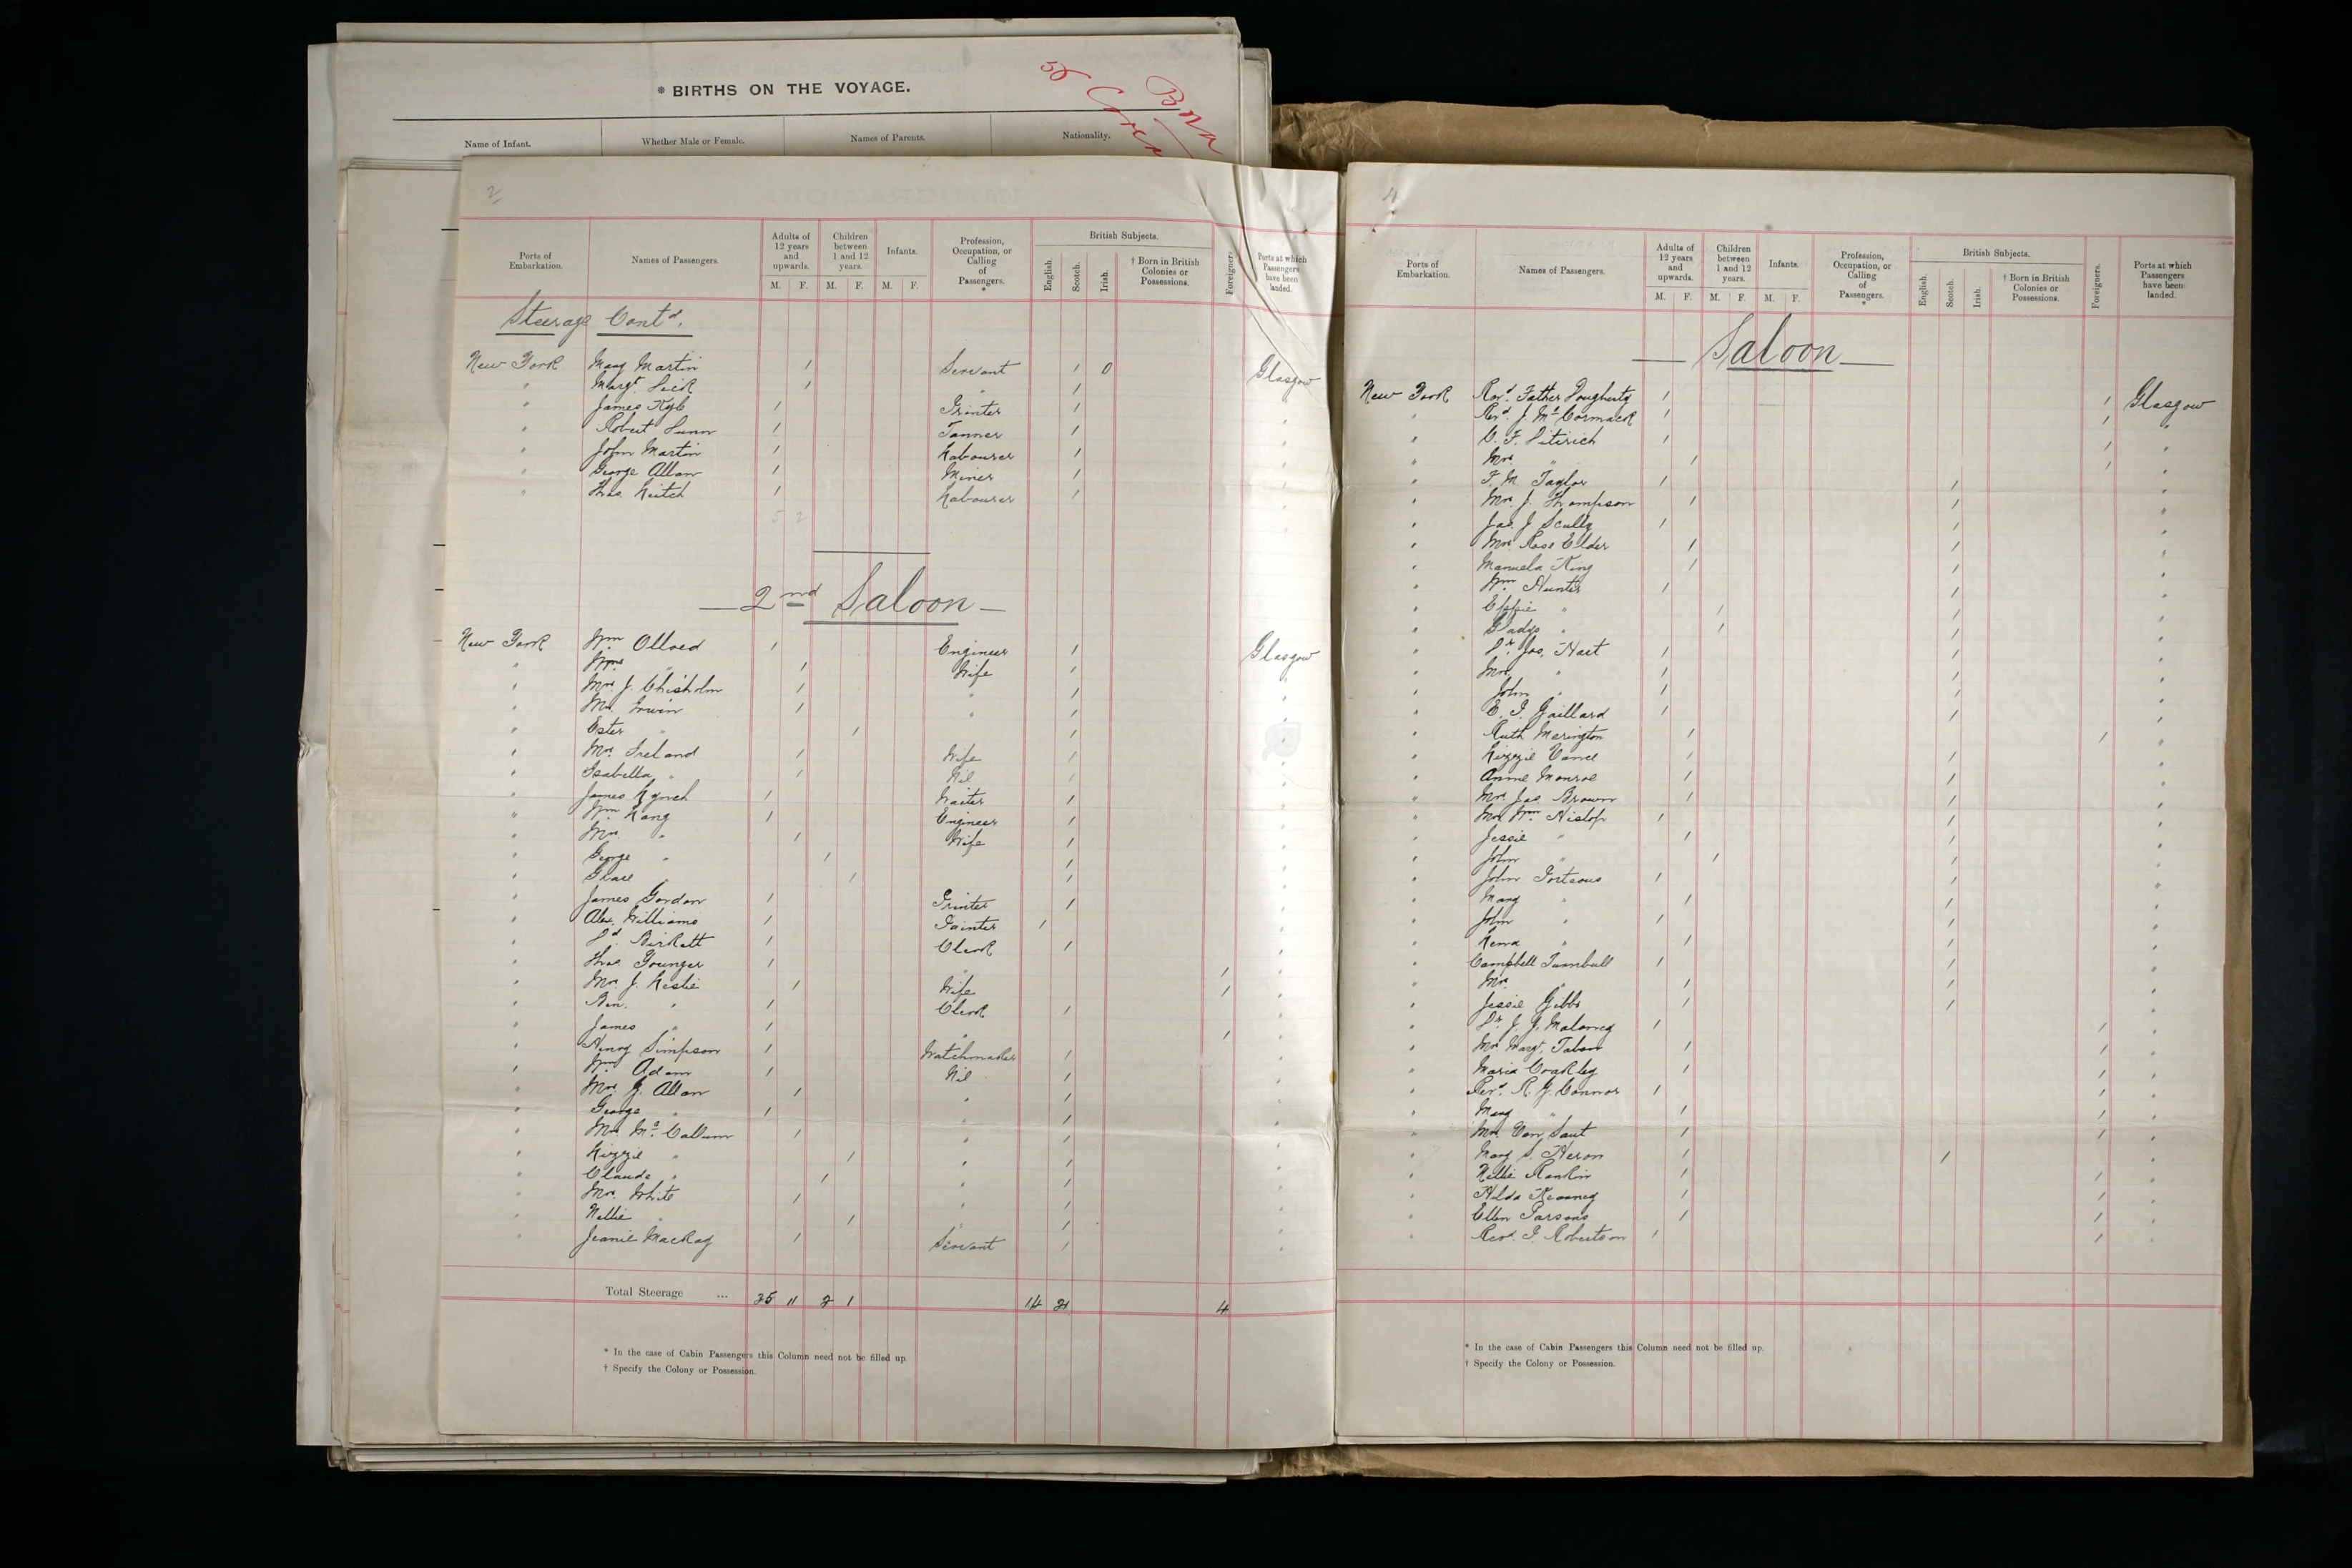 * BIRTHS ON THE VOYAGE.
Name of Infant. Whether Male or Female. Names of Parents. Nationality.
2
Ports of Embarkation. Names of Passengers. Adults of 12 years and upwards. Children between 1 and 12 years. Infants. Profession, Occupation, or Calling of Passengers. * British Subjects. Foreigners. Ports at which Passengers have been landed.
M. F. M. F. M. F. English. Scotch. Irish. † Born in British Colonies or Possessions.
Steerage Contd.
New York Mary Martin 1 Servant 1 0 Glasgow
" Margt 1 " 1 "
" James Kyle 1 Printer 1 "
" Robert Dunn 1 Tanner 1 "
" John Martin 1 Labourer 1 "
" George Allan 1 Miner 1 "
" Thos Leitch 1 Labourer 1 "
5 2
— 2nd Saloon —
New York Wm Olloed 1 Engineer 1 Glasgow
" Mrs " 1 Wife 1 "
" Mrs J. Chisholm 1 " 1 "
" Mrs Irwin 1 " 1 "
" Ester " 1 1 "
" Mrs Ireland 1 Wife 1 "
" Isabella " 1 Nil 1 "
" James Lynch 1 Waiter 1 "
" Wm Lang 1 Engineer 1 "
" Mrs " 1 Wife 1 "
" George " 1 1 "
" Grace " 1 1 "
" James Gordon 1 Printer 1 "
" Alex. Williams 1 Painter 1 "
" Birkett 1 Clerk 1 "
" Thos Younger 1 " 1 "
" Mrs J. Leslie 1 Wife 1 "
" Ben. " 1 Clerk 1 "
" James " 1 " 1 "
" Henry Simpson 1 Watchmaker 1 "
" Wm Adam 1 Nil 1 "
" Mrs J. Allan 1 " 1 "
" George " 1 " 1 "
" Mrs McCallum 1 " 1 "
" Lizzie " 1 " 1 "
" Claude " 1 " 1 "
" Mrs White 1 " 1 "
" Nellie " 1 " 1 "
" Jeanie MacKay 1 Servant 1 "
Total Steerage ... 35 11 2 1 14 31 4
* In the case of Cabin Passengers this Column need not be filled up.
† Specify the Colony or Possession.
4
Ports of Embarkation. Names of Passengers. Adults of 12 years and upwards. Children between 1 and 12 years. Infants. Profession, Occupation, or Calling of Passengers. * British Subjects. Foreigners. Ports at which Passengers have been landed.
M. F. M. F. M. F. English. Scotch. Irish. † Born in British Colonies or Possessions.
— Saloon —
New York Revd. Father Dougherty 1 1 Glasgow
" Revd. J. McCormack 1 1 "
" C. F. Ditirich 1 1 "
" Mrs " 1 1 "
" F. M. Taylor 1 1 "
" Mrs J. Thompson 1 1 "
" Jas. J. Scully 1 1 "
" Mrs Rose Elder 1 1 "
" Manuela King 1 1 "
" Wm Hunter 1 1 "
" Effie " 1 1 "
" Gladys " 1 1 "
" Dr. Jas. Hart 1 1 "
" Mrs " 1 1 "
" John " 1 1 "
" E. I. Gaillard 1 1 "
" Ruth Merington 1 1 "
" Lizzie Vance 1 1 "
" Annie Monroe 1 1 "
" Mrs Jas Brown 1 1 "
" Mr Wm Hislop 1 1 "
" Jessie " 1 1 "
" John " 1 1 "
" John Porteous 1 1 "
" Mary " 1 1 "
" John " 1 1 "
" Lena " 1 1 "
" Campbell Turnbull 1 1 "
" Mrs " 1 1 "
" Jessie Gibbs 1 1 "
" Dr. J. G. Maloney 1 1 "
" Mrs Margt. Tabor 1 1 "
" Maria Coakley 1 1 "
" Revd R. J. Connor 1 1 "
" Mary " 1 1 "
" Mrs Van Saut 1 1 "
" Mary S. Heron 1 1 "
" Nellie Rankin 1 1 "
" Hilda Kearney 1 1 "
" Ellen Parsons 1 1 "
" Revd. I. Robertson 1 1 "
* In the case of Cabin Passengers this Column need not be filled up.
† Specify the Colony or Possession.